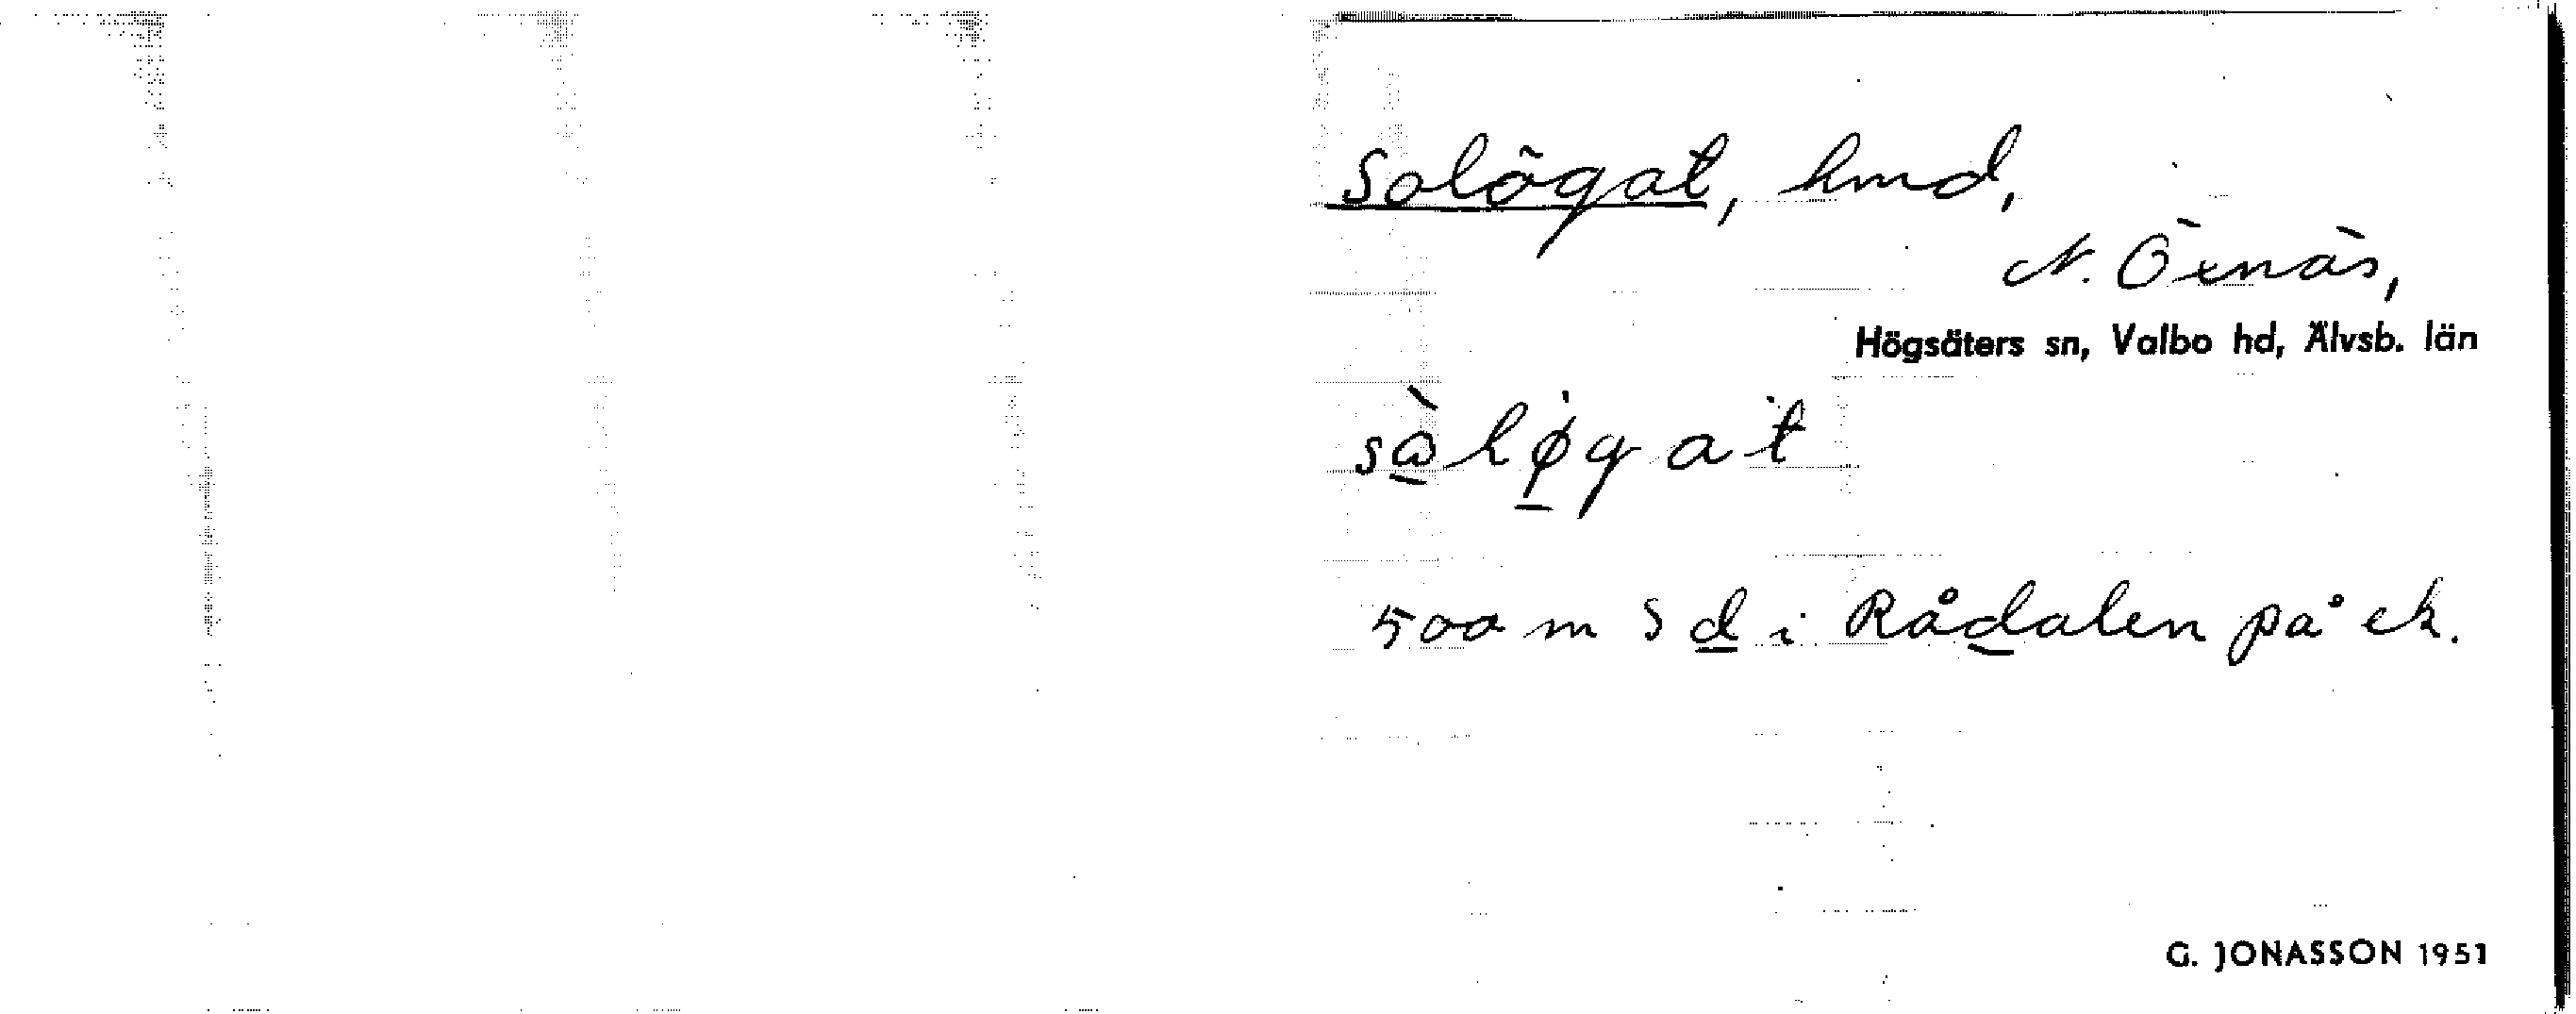 Solögat, hmd,
N. Öxnäs,
Högsäters sn, Valbo hd, Älvsb. län
500 m S d i Rådalen på ek.
G. JONASSON 1951